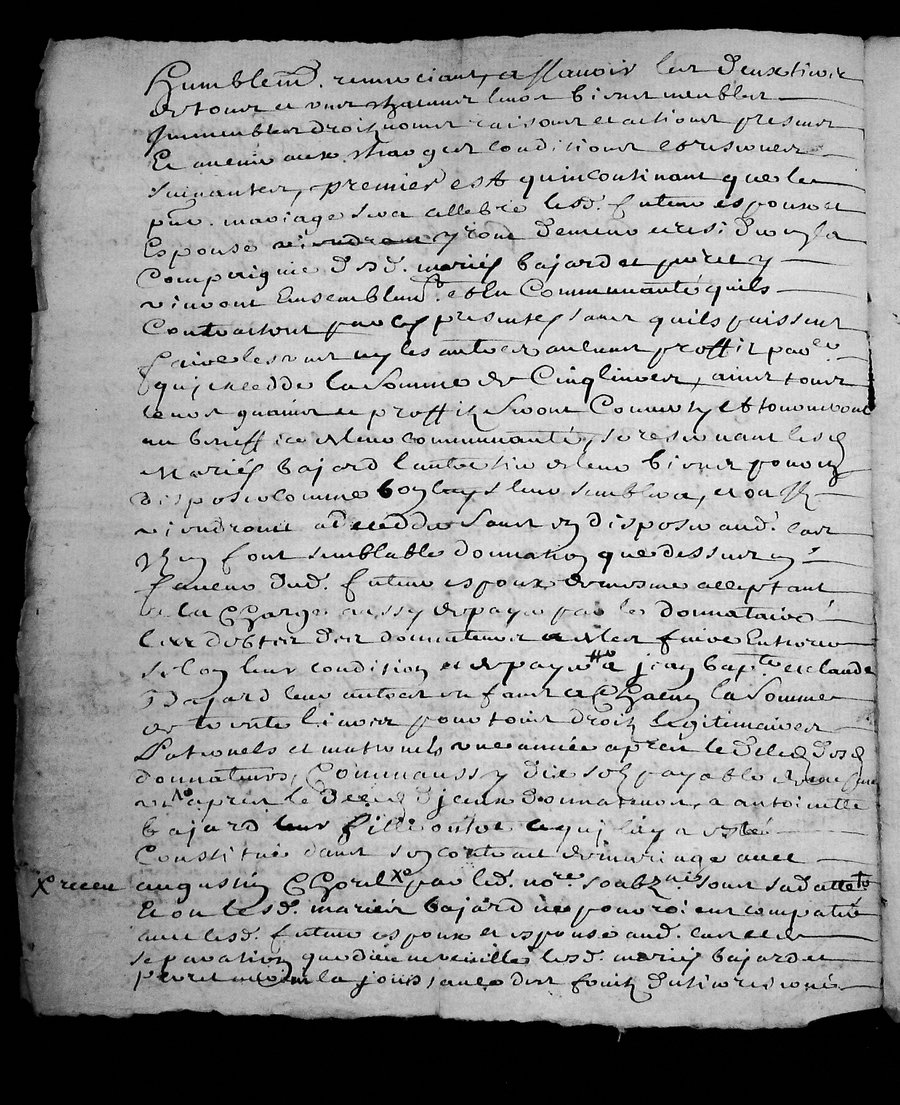 humblem.t remerciant, assavoir les deux tiers
de tous et uns chacuns leurs biens meubles
Immeubles droits noms raisons et actions presens
Et avenir aux charges conditions et reserves
suivantes, premier est quincontinant que le
pnt. mariage sera cellebré lesd. futurs espoux et
Espouse viendront yront demeurer resider en la
Compagnie desd. mariés bajard et perret y
vivront Ensemblem.t et en Communauté quils
Contractent par ces presentes sans quils puissent
faire les uns ny les autres aulcuns proffit par
qui excedde la somme de Cinq livres, ains tous
leurs guains et proffits seront Communs et tourneront
au beneffice de leur communauté, se reservant lesd.
Mariés bajard l'autre tier de leur biens pour en
disposer comme bon leurs semblera, et ou ils
viendront a decedder sans en disposer aud. cas
ils en font semblable donnation que dessus en
faveur dud. futur espoux de mesme acceptant
a la Charge aussy de payer par le donnataire
les debtes des donnateurs et de les faire Enterrer
selon leur condition et de payer a jean bap.te et claude
Bajard leur autres enfans a Chacun la somme
de trente livres pour tous droits legitimaires
Paternels et maternels une année apres le deced desd.
donnateurs, Comm'aussy dix sols payable
apres le deced d'jceux donnateurs, a antoinette
bajard leur fille outre ce qui luy a esté
Constitué dans son contrat de mariage avec
X receu augustin Choril X par led. no.re soubz.né sous sa datte
Et ou lesd. mariés bajard ne pourroient compatir
avec lesd. futurs espoux et espouse aud. cas de
separation que dieu ne veuille lesd. mariés bajard et
perret auront la jouissance des fruits du tier reservé